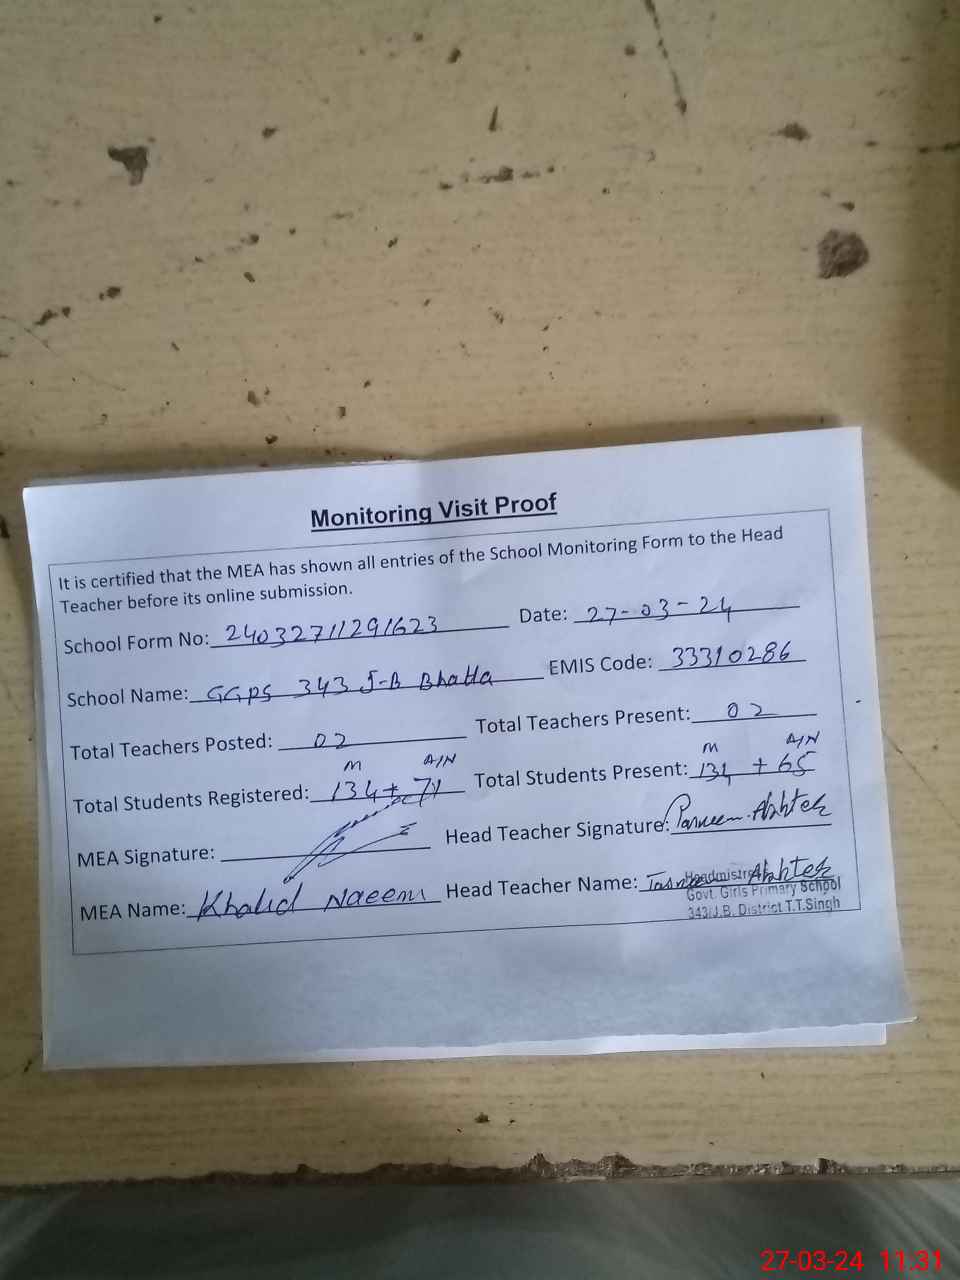 Monitoring Visit Proof
It is certified that the MEA has shown all entries of the School Monitoring Form to the Head
Teacher before its online submission.
School Form No: 24032711291623 Date: 27-03-24
School Name: GGPS 343 J-B Bhatta EMIS Code: 33310286
Total Teachers Posted: 02 Total Teachers Present: 02
M A/N M A/N
Total Students Registered: 134+ 71 Total Students Present: 134 + 65
MEA Signature: Head Teacher Signature: Akhter
MEA Name: Khalid Naeem Head Teacher Name: Akhter
Headmistress
Govt. Girls Primary School
343/J.B. District T.T.Singh
27-03-24 11:31